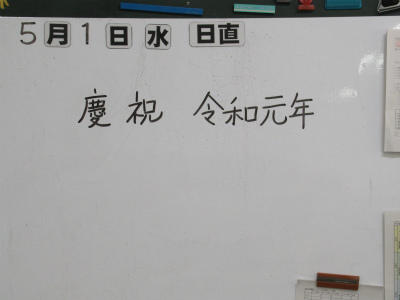 5月1日水 日直
慶祝 令和元年